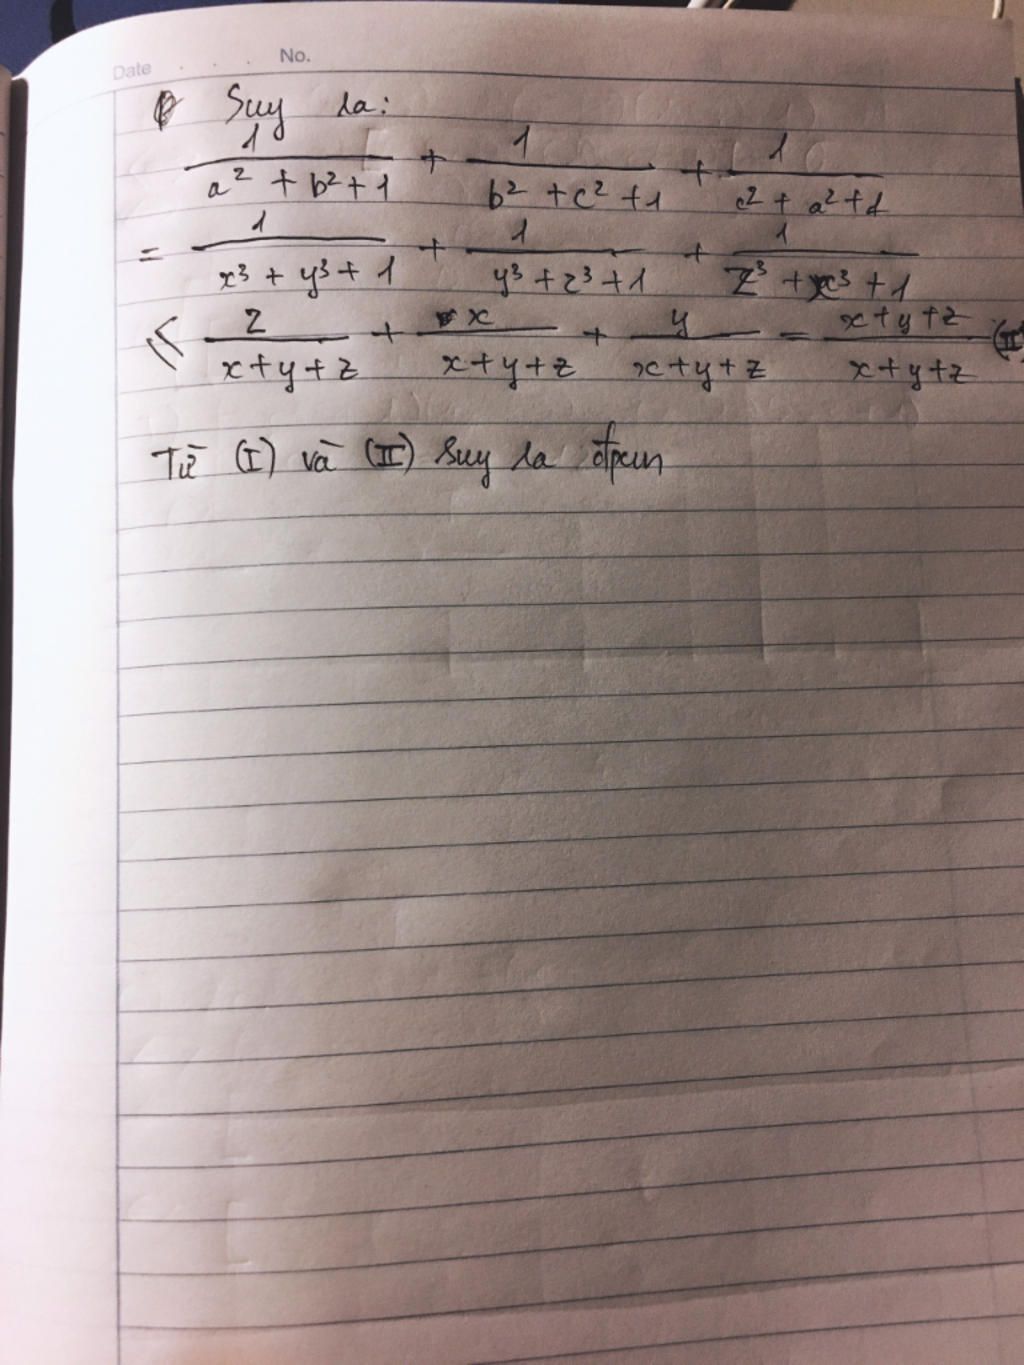 Date . . . No.
Suy ra:
1/(a² + b² + 1) + 1/(b² + c² + 1) + 1/(c² + a² + 1)
= 1/(x³ + y³ + 1) + 1/(y³ + z³ + 1) + 1/(z³ + x³ + 1)
≤ z/(x+y+z) + x/(x+y+z) + y/(x+y+z) = (x+y+z)/(x+y+z) (II)
Từ (I) và (II) suy ra đpcm